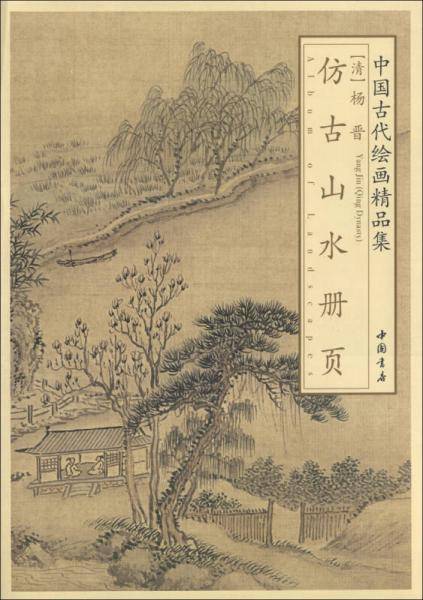 中国古代绘画精品集
[清] 杨晋
Yang Jin (Qing Dynasty)
仿古山水册页
Album of Landscapes
中国书店